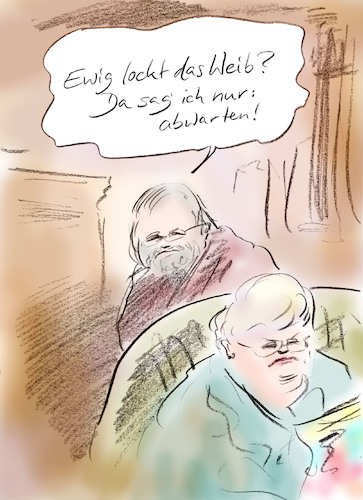 Ewig lockt das Weib?
Da sag ich nur:
abwarten!